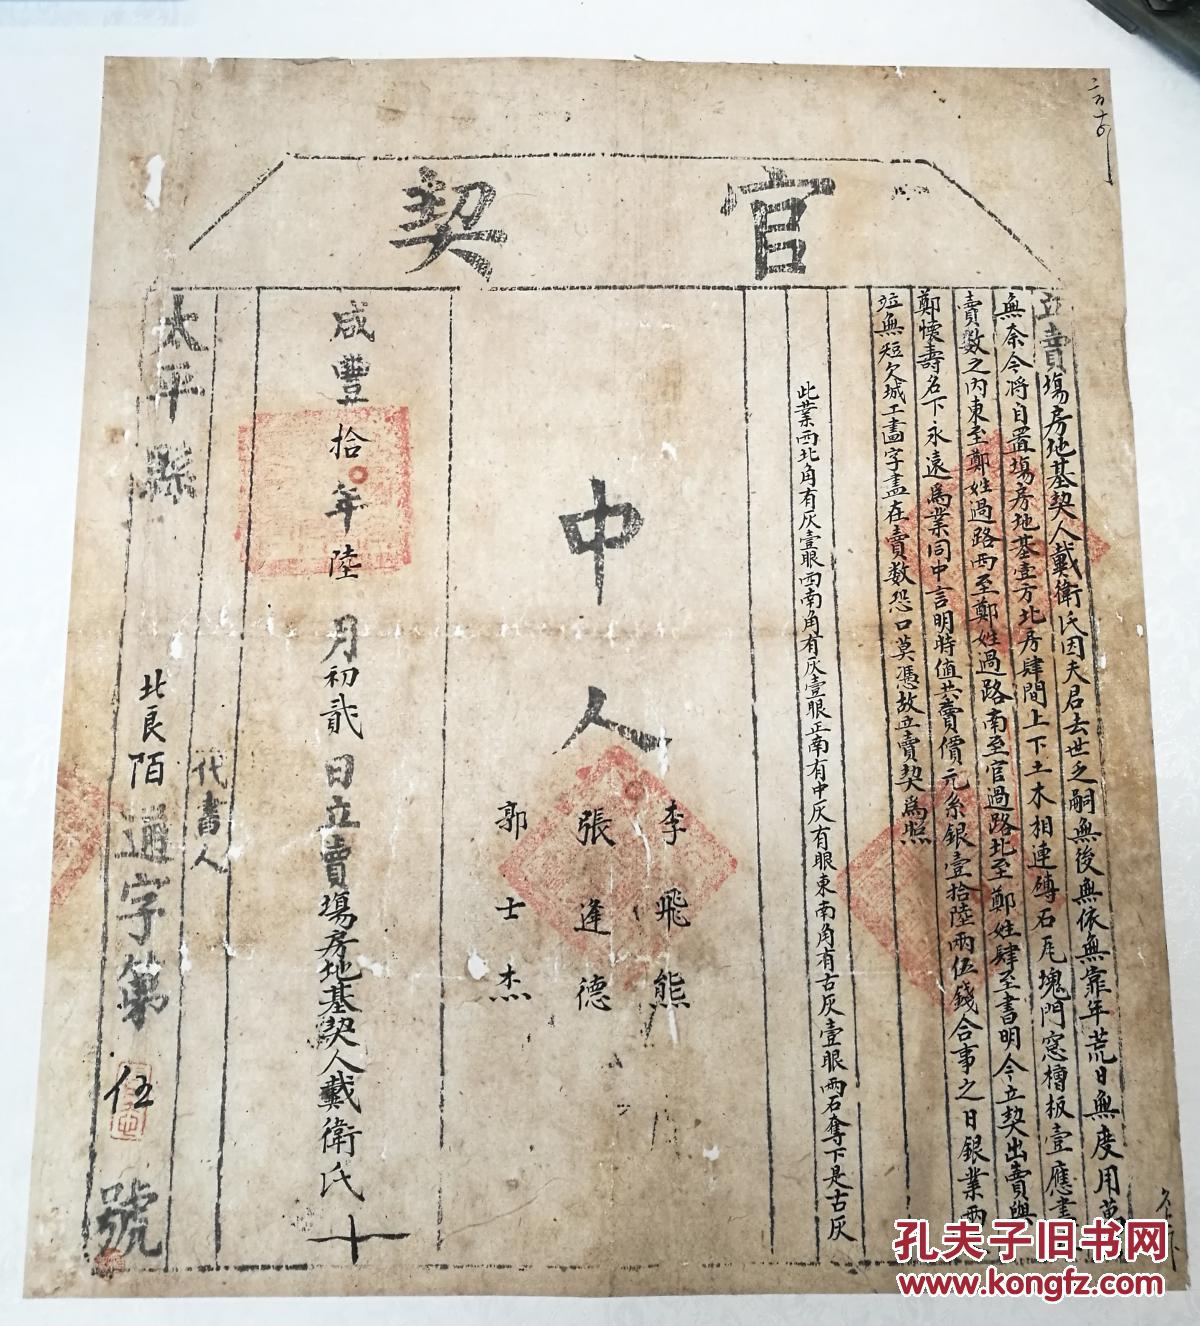 官契
立賣場房地基契人戴衛氏因夫君去世乏嗣無後無依無靠年荒日無度用萬
無奈今將自置場房地基壹方北房肆間上下土木相連磚石瓦塊門窓檐板壹應書
賣數之內東至鄭姓過路西至鄭姓過路南至官過路北至鄭姓肆至書明今立契出賣與
鄭懷壽名下永遠爲業同中言明時值共賣價元糸銀壹拾陸兩伍錢合事之日銀業兩
竝無短欠城工畵字盡在賣数恐口莫憑故立賣契爲照
此業西北角有灰壹眼西南角有灰壹眼正南有中灰有眼東南角有古灰壹眼兩石奪下是古灰
中人
李飛熊
張逢德
郭士杰
咸豐拾年陸月初貳日立賣場房地基契人戴衛氏十
代書人
太平縣北良陌通字第伍號
孔夫子旧书网
www.kongfz.com